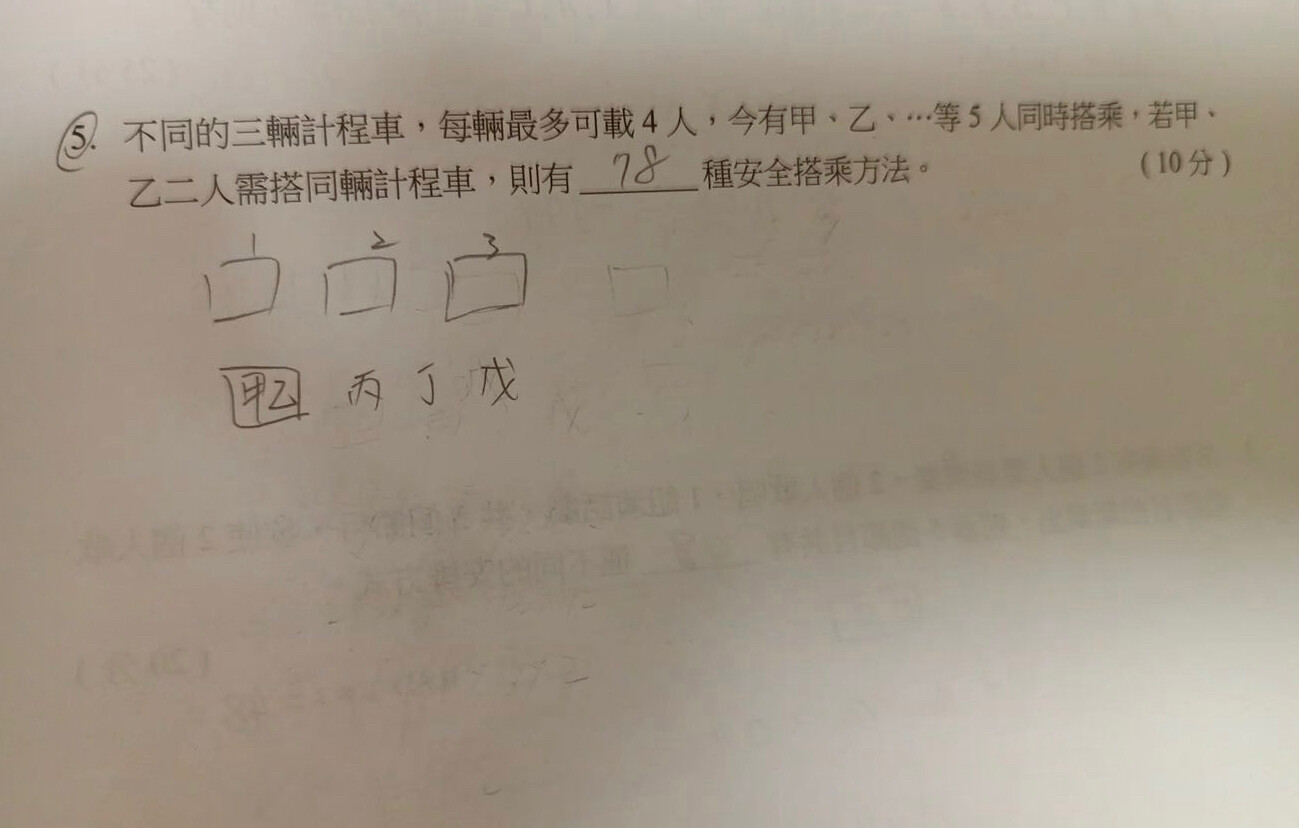 5. 不同的三輛計程車，每輛最多可載 4 人，今有甲、乙、⋯等 5 人同時搭乘，若甲、
乙二人需搭同輛計程車，則有 78 種安全搭乘方法。 （10 分）
1 2 3
甲乙 丙 丁 戊